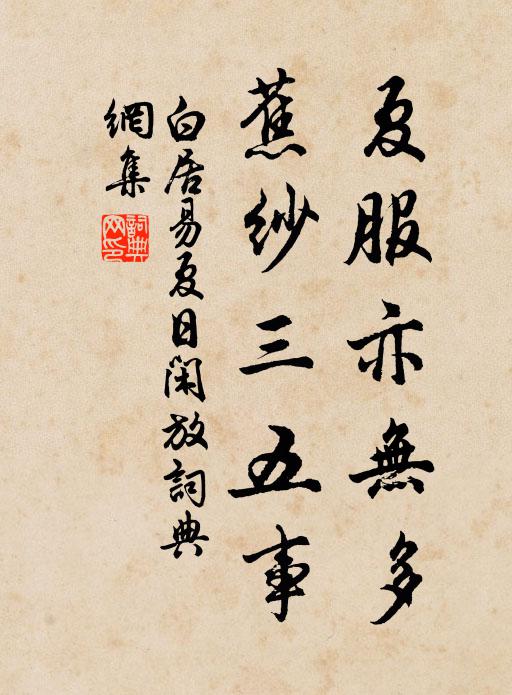 夏服亦無多
蕉紗三五事
白居易夏日閑放詞典
網集
詞典
网印